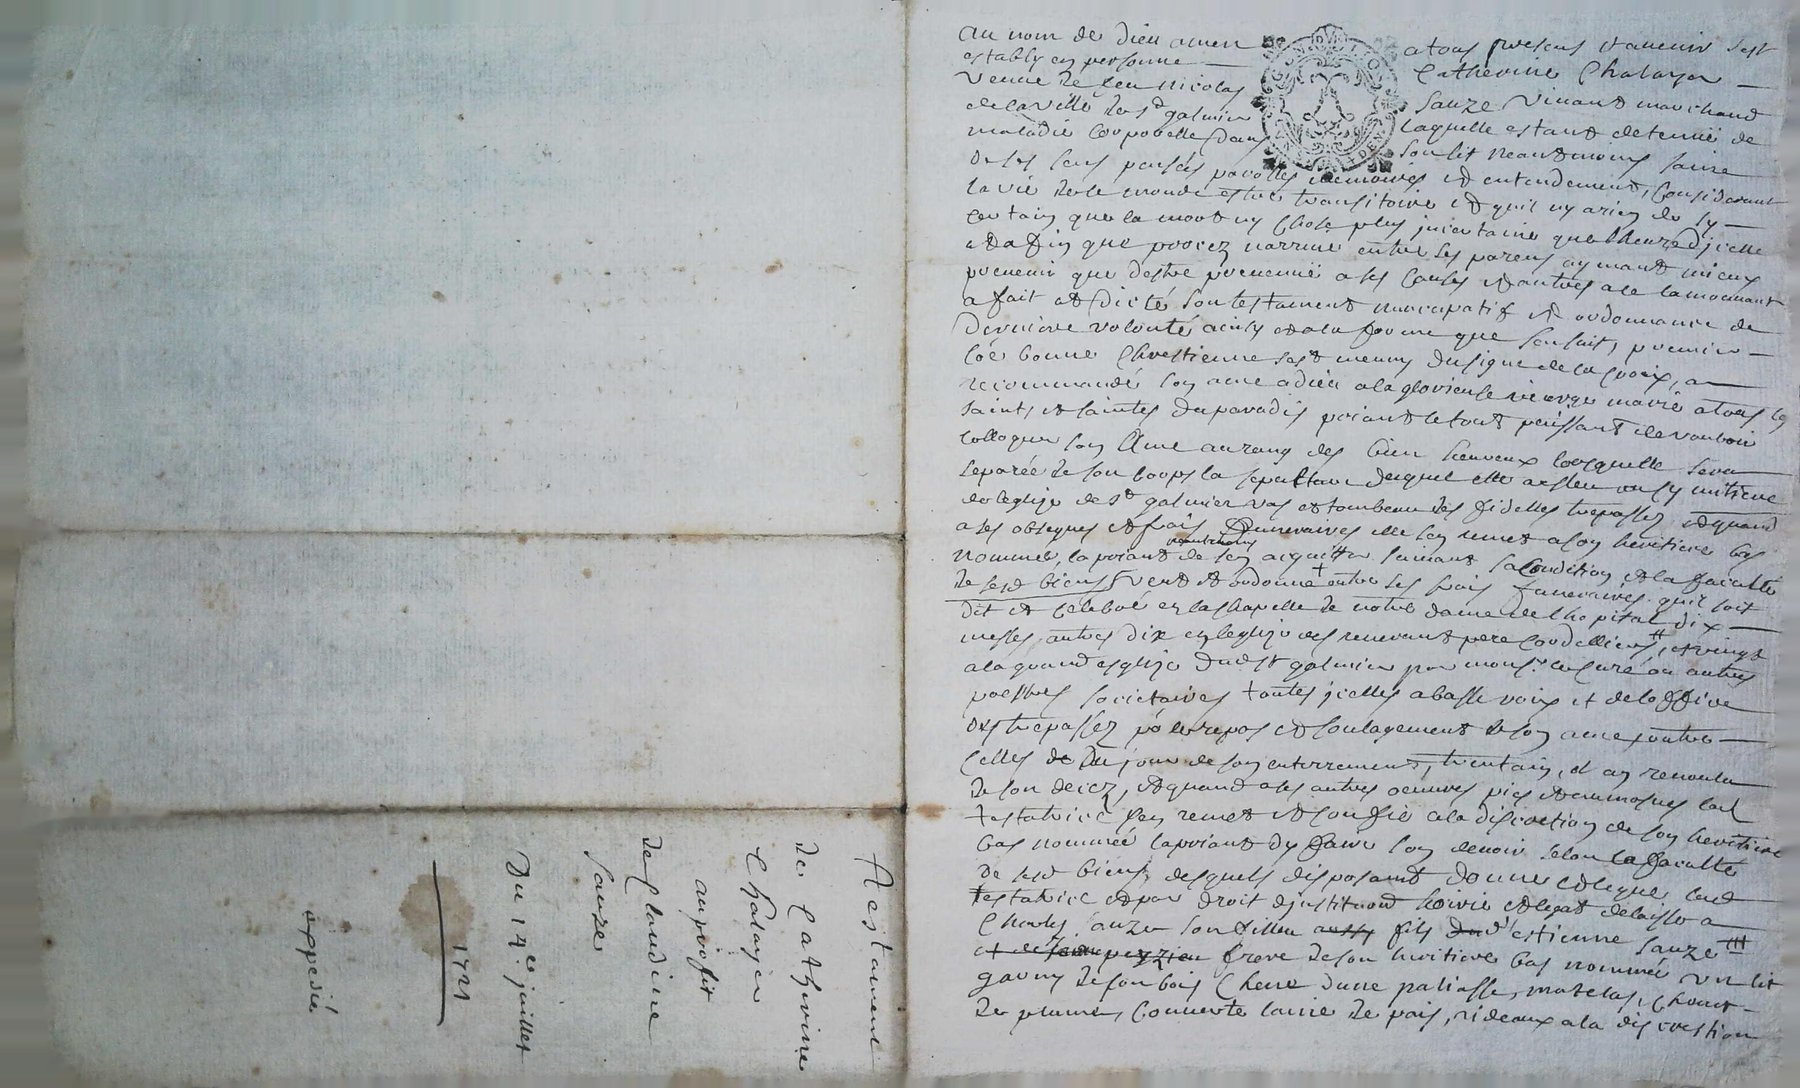 au nom de dieu amen a tous presens et avenir sest
estably en personne Catherine Chalayer
veuve de feu nicolas Sauze vivant marchand
de la ville de st galmier laquelle estant detenuë de
maladie corporelle dans son lit neantmoins saine
de ses sens pensées parolles memoires et entendement, Considerant
la vie de ce monde estre transitoire et quil ny a rien de sy
certain que la mort ny chose plus incertaine que lheure dicelle
et afin que procez narrive entre ses parens aymant mieux
prevenir que destre prevenuë a ses causes et autres a ce la mouvant
a fait et dicté son testament nuncupatif et ordonnance de
derniere volonté ainsy et a la forme que sensuit, premier
coe bonne Chrestienne sest munny du signe de la croix, a
recommandé son ame a dieu a la glorieuse vierge marie a tous les
saints et saintes du paradis priant le tout puissant de vouloir
colloquer son Ame au rang des bien heureux lorsquelle sera
separée de son corps la sepulture duquel elle a esleu
de leglize de st galmier vas et tombeau des fidelles trepassez et quand
a ses obseques et frais funeraires elle sen remet a son heritiere bas
nommée, la priant neantmoins de sen acquitter suivant sa condition et la faculté
de sesd biens veut et ordonne + outre ses frais funeraires quil soit
dit et celebré en la chapelle de notre dame de lhopital dix
messes, autres dix en leglize des reverant pere Cordelliers, et vingt
a la grand esglize dudt st galmier par monsr le curé ou autres
prestres societaires toutes icelles a basse voix et de loffice
des trepassez pr le repos et soulagement de son ame, outre
celles du jour de son enterrement, trentain, et an revoulu
de son decez, et quand a ses autres oeuvres pies et aumosnes lad
testatrice sen remet et confie a la discretion de son heritiere
bas nommée la priant dy faire son devoir selon la faculté
de sesd biens, desquels disposant donne et legue lad
testatrice et par droit djnstitution hoirie et legat delaisse a
Charles Sauze son fillieu fils destienne Sauze
frere de son heritiere bas nommée un lit
garny de son bois Chene dune paliasse, matelas, Chevet
de plume, Couverte laine de païs, rideaux a la discrestion
Testament
de Catherine
Chalayer
au profit
de Claudine
Sauze
Du 14e juillet
1721
expedié